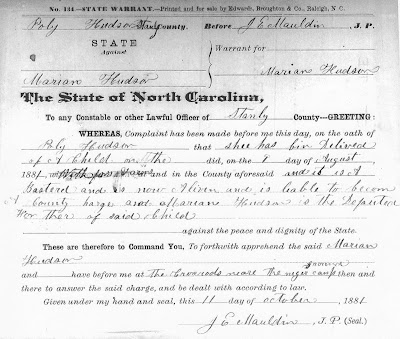 No. 134—STATE WARRANT.—Printed and for sale by Edwards, Broughton & Co., Raleigh, N. C.
Poly Hudson Stanly County. Before J E Mauldin, J. P.
STATE
Against
Warrant for
Marian Hudson
Marian Hudson
The State of North Carolina,
To any Constable or other Lawful Officer of Stanly County—GREETING:
WHEREAS, Complaint has been made before me this day, on the oath of
Poly Hudson that shee has bin Delived
of A Child on the did, on the 8 day of August,
1881 and in the County aforesaid and is A
Basterd and is now A liven and is liable to becom
A County harge and Marian Hudson is the Reputed
ther of said Child
against the peace and dignity of the State.
These are therefore to Command You, To forthwith apprehend the said Marian
Hudson
and have before me at the Crossroads neare the camp then and
there to answer the said charge, and be dealt with according to law.
Given under my hand and seal, this 11 day of october, 1881
J E Mauldin, J. P. (Seal.)